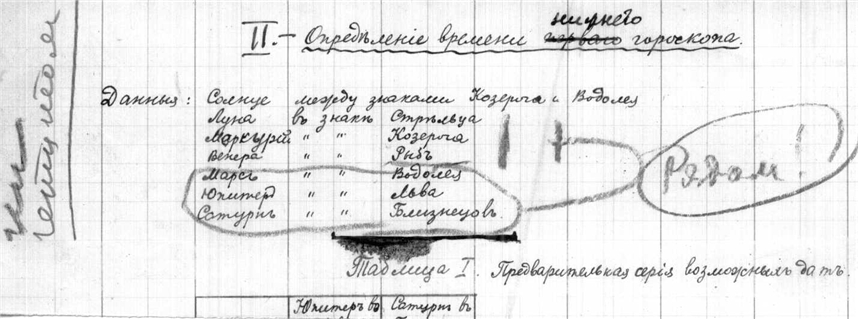 нижняго
II. — Опредѣленіе времени перваго гороскопа.
Данныя: Солнце между знаками Козерога и Водолея
Луна въ знакѣ Стрѣльца
Меркурій " " Козерога
Венера " " Рыбъ
Марсъ " " Водолея
Юпитеръ " " Льва
Сатурнъ " " Близнецовъ.
Рядом!
Таблица I. Предварительная серія возможныхъ датъ.
Юпитеръ во Сатурнъ въ